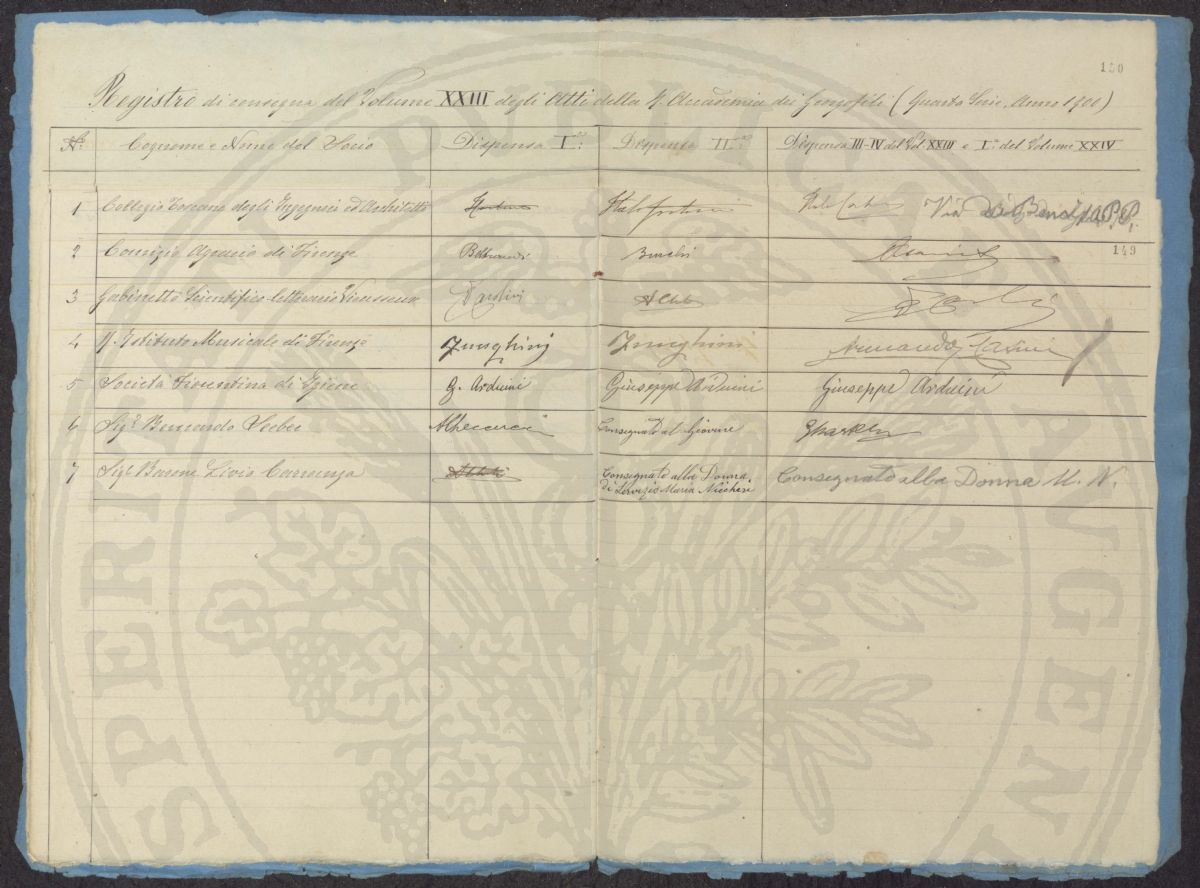 150
Registro di consegna del Volume XXIII degli Atti della R. Accademia dei Georgofili (Quarta Serie, Anno 1900)
N.º Cognome e Nome del Socio Dispensa Iª: Dispensa IIª: Dispensa III-IV del Vol. XXIII e Iª del Volume XXIV
1 Collegio Toscano degli Ingegneri ed Architetti Via dei
149
2 Comizio Agrario di Firenze
3 Gabinetto Scientifico-letterario Vieusseux
4 R. Istituto Musicale di Firenze Junghini Junghini Armando
5 Società Fiorentina di Igiene G. Arduini Giuseppe Arduini Giuseppe Arduini
6 Sig.r Bernardo Seeber Consegnato al Giovine
7 Sig.r Barone Livio Carranza Consegnato alla Donna Consegnato alla Donna M. N.
di Servizio Maria Niccheri
SPERITATI PUBLICAE AUGENDAE